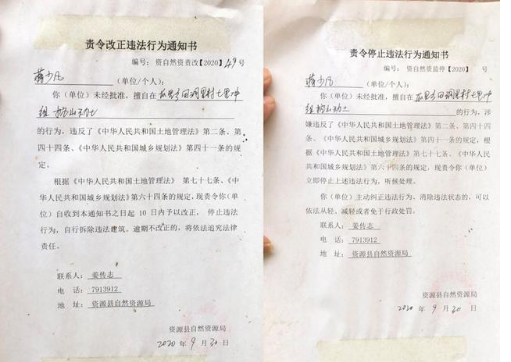 责令改正违法行为通知书
编号: 资自然资责改【2020】49号
蒋少凡(单位/个人):
你(单位)未经批准,擅自在
组
的行为,违反了《中华人民共和国土地管理法》第二条、第
四十四条、《中华人民共和国城乡规划法》第四十一条的规
定。
根据《中华人民共和国土地管理法》 第七十七条、《中
华人民共和国城乡规划法》第六十四条的规定,现责令你(单
位)自收到本通知书之日起 10 日内予以改正, 停止违法
行为,自行拆除违法建筑。逾期不改正的,将依法追究法律
责任。
联系人: 姜传志
电 话: 7913912
地 址: 资源县自然资源局
资源县自然资源局
2020 年 9 月 20 日
责令停止违法行为通知书
编号: 资自然资监停【2020】 号
蒋少凡(单位/个人):
你(单位)未经批准,擅自在
的行为,涉
嫌违反了《中华人民共和国土地管理法》第二条、第四十四
条、《中华人民共和国城乡规划法》第四十一条的规定,根
据《中华人民共和国土地管理法》第七十七条、《中华人民
共和国城乡规划法》第六十四条的规定,现责令你(单位)
立即停止上述违法行为,听候处理。
你(单位)主动纠正违法行为、消除违法状态的,可以
依法从轻、减轻或者免于行政处罚。
联系人: 姜传志
电 话: 7913912
地 址: 资源县自然资源局
资源县自然资源局
2020 年 9 月 20 日